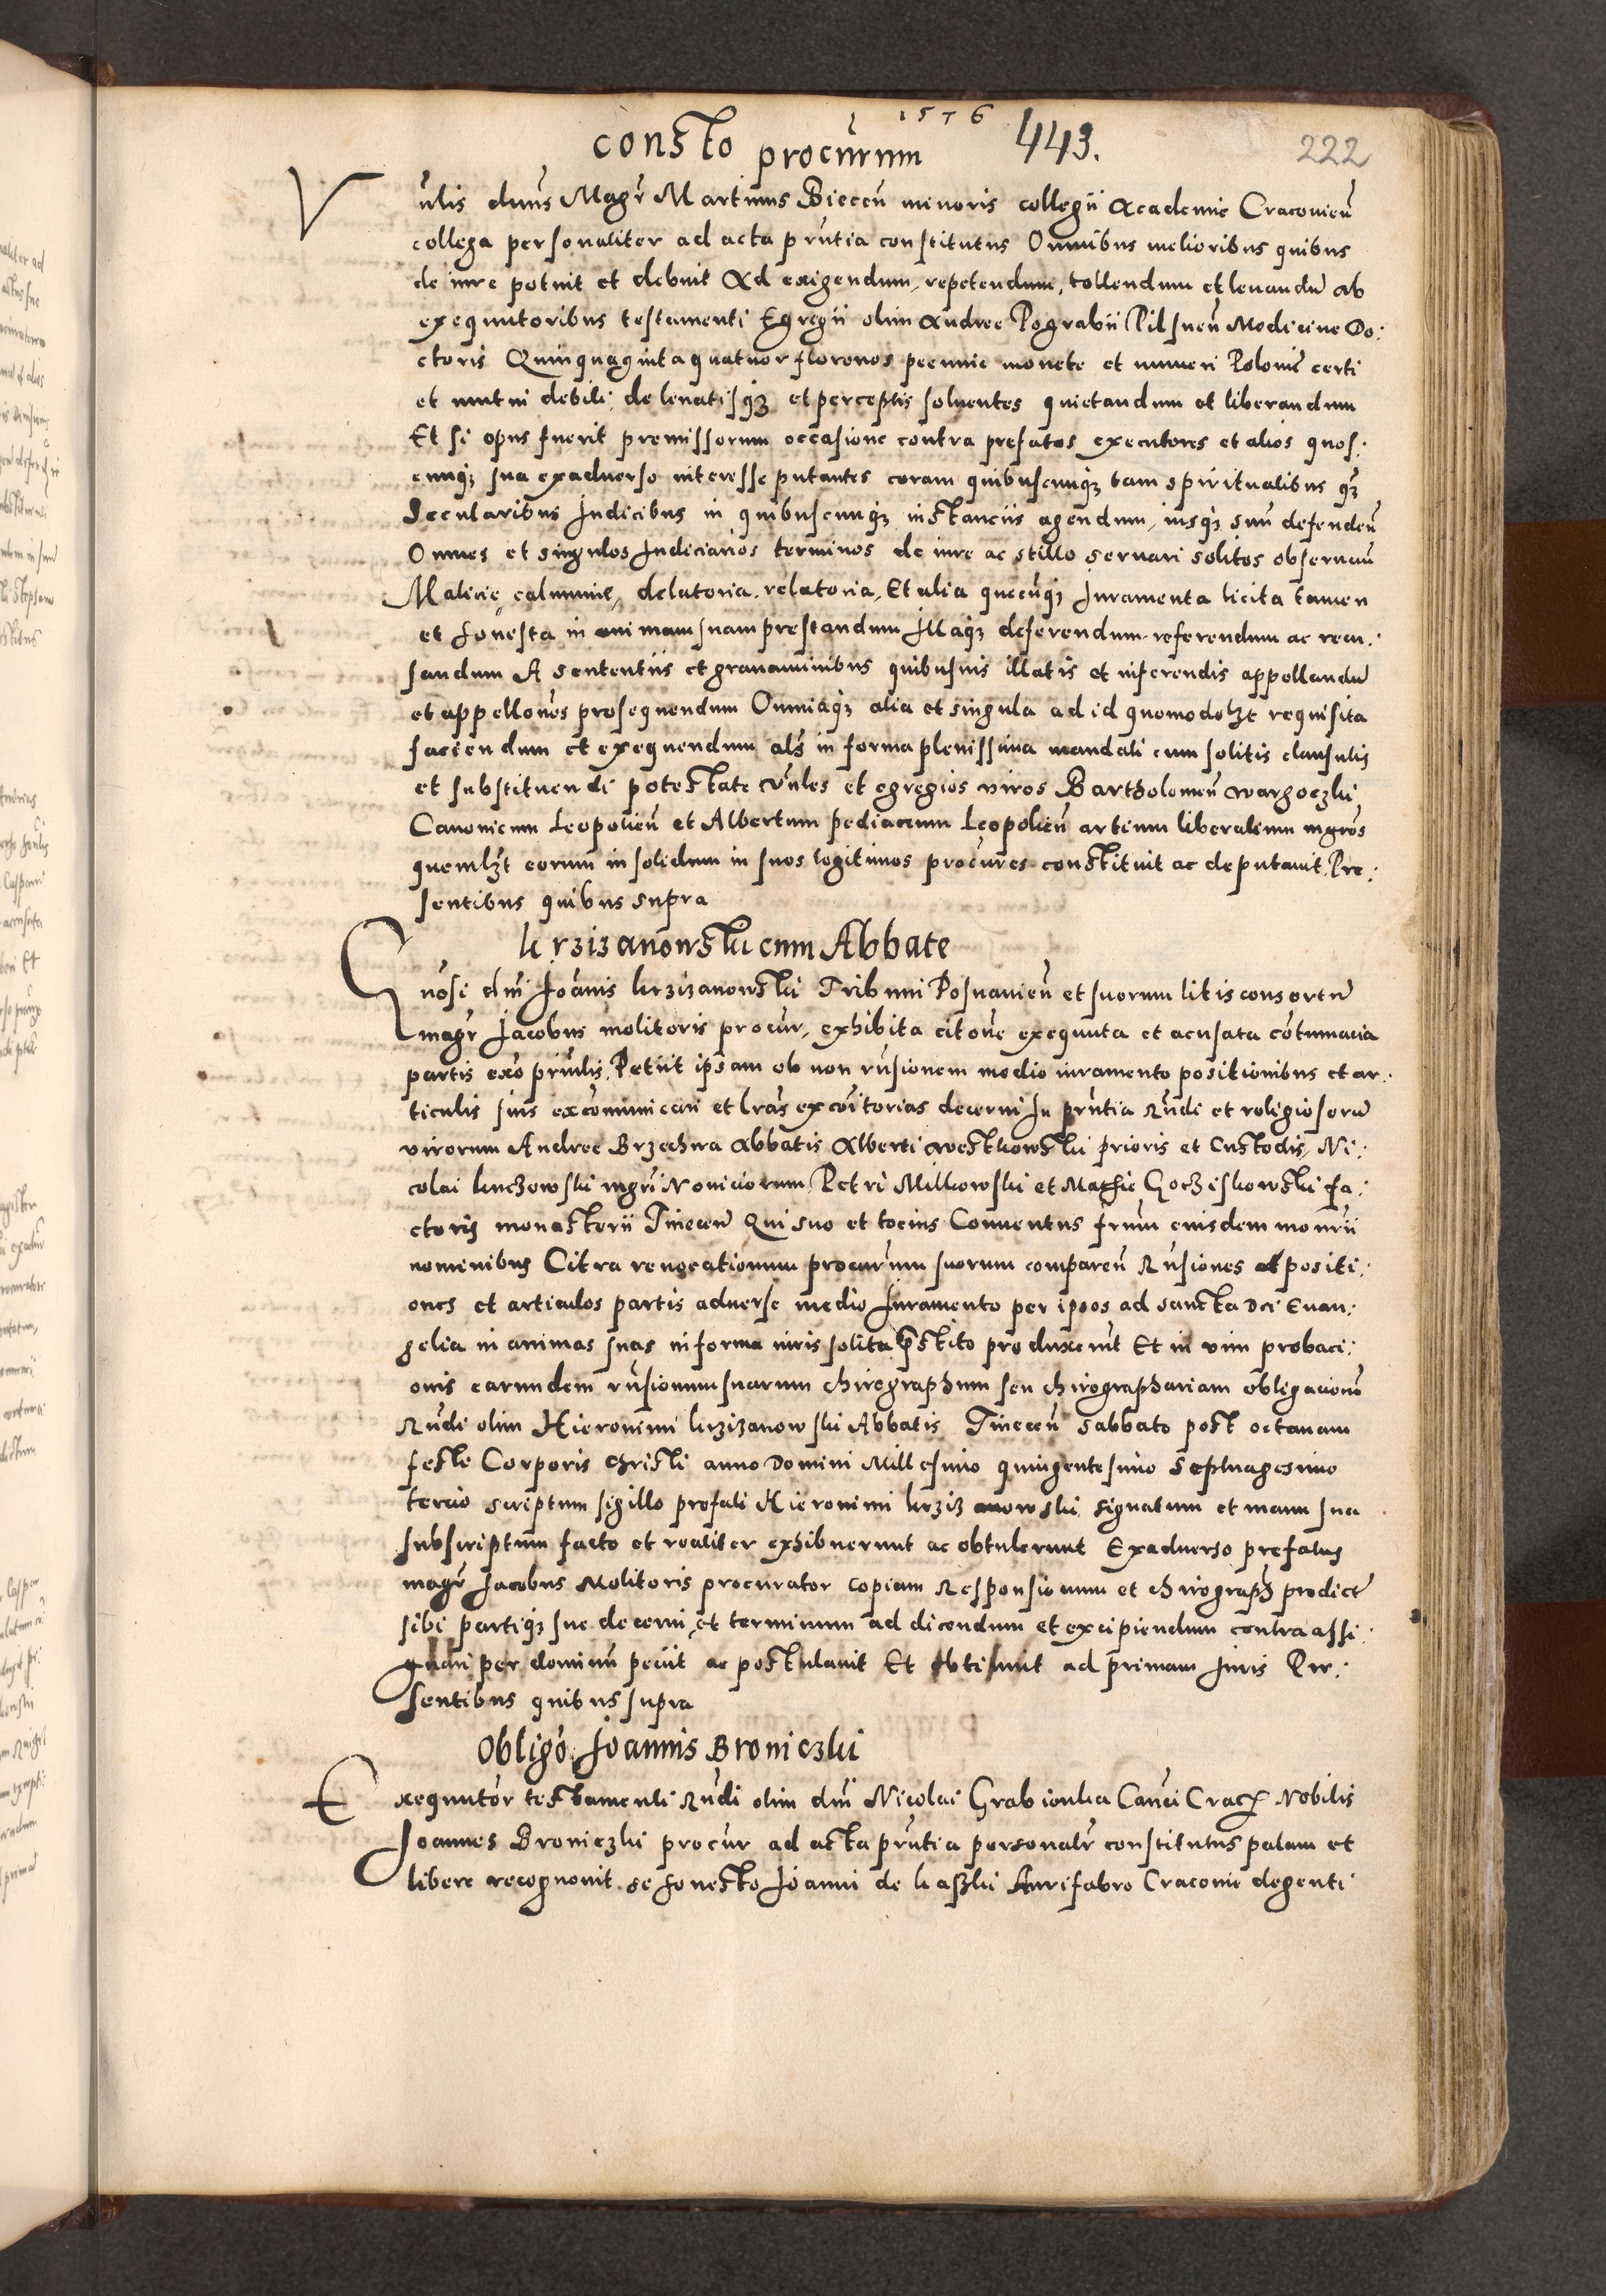 1576
consto procurum 443. 222
Vnlis dnus Magr Martinus Biecen minoris collegii Academie Cracouien
collega personaliter ad acta pruntia constitutus Omnibus melioribus quibus
de iure potuit et debuit Ad exigendum, repetendum, tollendum et leuandu ab
exequutoribus testamenti Egregii olim Andree Pograbii Pilsnen Medicine Do:
ctoris Quinquaginta quatuor florenos pecunie monete et numeri Polonie certi
et mutui debiti, de leuatisqz et perceptis soluentes quietandum et liberandum
Et si opus fuerit premissorum occasione contra prefatos executores et alios quos:
cunqz sua exaduerso interesse putantes coram quibuscunqz tam spiritualibus qz
Secularibus Judicibus in quibuscunqz instanciis agendum, iusqz suu defenden
Omnes et singulos Judiciarios terminos de iure ac stillo seruari solitos obseruan
Malicie, calumnie, delatoria, relatoria, Et alia quecuqz Juramenta licita tamen
et honesta in animam suam prestandum Illaqz deferendum referendum ac recu:
sandum A sententiis et grauaminibus quibusuis illatis et inferendis appellandu
et appellones prosequendum Omniaqz alia et singula ad id quomodolzt requisita
faciendum et exequendum als in forma plenissima mandati cum solitis clausulis
et substituendi potestate Vnles et egregios viros Bartholomeu Wargoczki
Canonicum Leopolien et Albertum pediacum Leopolien artium liberalium mgros
quemlzt eorum in solidum in suos legitimos procures constituit ac deputauit, Pre:
sentibus quibus supra
krzizanowski cum Abbate
Gnosi dni Joannis krzizanowski Tribuni Posnanien et suorum litis consortu
magr Jacobus molitoris procur, exhibita citone exequuta et acusata cotumacia
partis exo prinlis, Petiit ipsam ob non rusionem medio iuramento positionibus et ar:
ticulis suis excomunicari et lras excoitorias decerni In pruntia Rndi et religiosoru
virorum Andree Brzechwa Abbatis Alberti Westkowski prioris et Custodis, Ni:
colai kuczowski mgri Nouiciorum, Petri Milkowski et Mathie Goczishowski fa:
ctoris monasterii Tinecen Qui suo et tocius Conuentus frum eiusdem monrii
nominibus Citra reuocationum procurum suorum comparen Rusiones ad positi:
ones et articulos partis aduerse medio Juramento per ipsos ad sancta Dei Euan:
gelia in animas suas in forma iuris solita pstito produxerut Et in vim probaci:
onis earundem rusionum suarum chirographum seu chirographariam obligacione
Rndi olim Hieronimi krzizanowski Abbatis Tinecen Sabbato post octauam
festi Corporis christi anno Domini Millesimo quingentesimo Septuagesimo
tercio scriptum sigillo prefati Hieronimi krzizanowski signatum et manu sua
subscriptum facto et realiter exhibuerunt ac obtulerunt Exaduerso prefatus
magr Jacobus Molitoris procurator copiam Responsionum et chirograph predict
sibi partiqz sue decerni, et terminum ad dicendum et excipiendum contra assi:
gnari per dominu peciit ac postulauit Et obtinuit ad primam Juris Pre:
sentibus quibus supra
Obligo Joannis Broniczki
Exequutor testamenti Rndi olim dni Nicolai Grabionka Canci Crac Nobilis
Joannes Broniczki procur ad acta pruntia personalr constitutus palam et
libere recognouit se honesto Joanni de kaszki Aurifabro Cracouie degenti